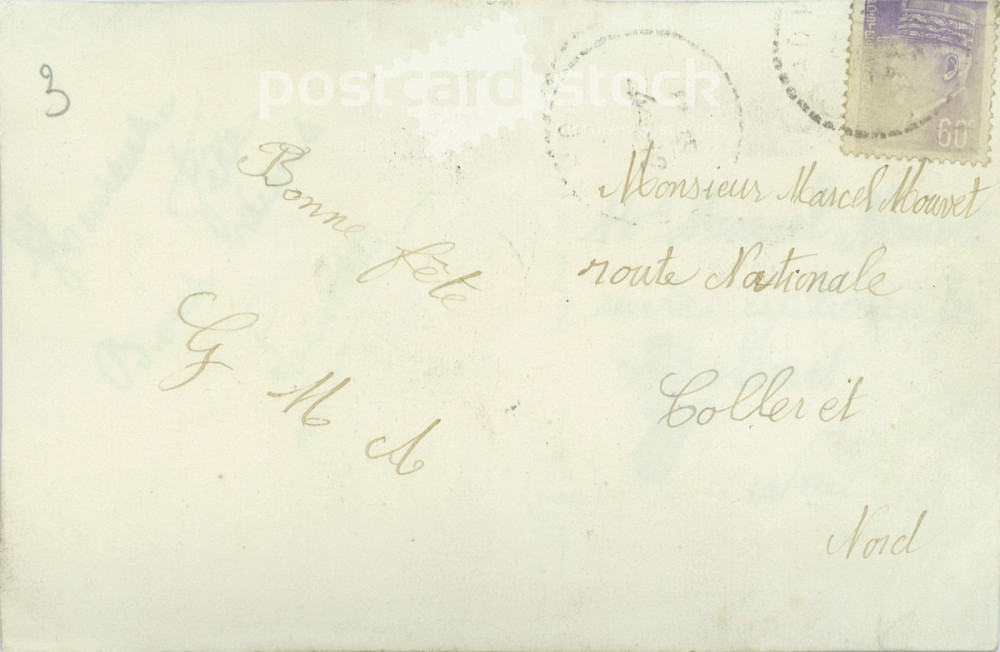 3
postcard stock
Bonne fête
G M A
Monsieur Marcel Mouvet
route Nationale
Colleret
Nord
60c